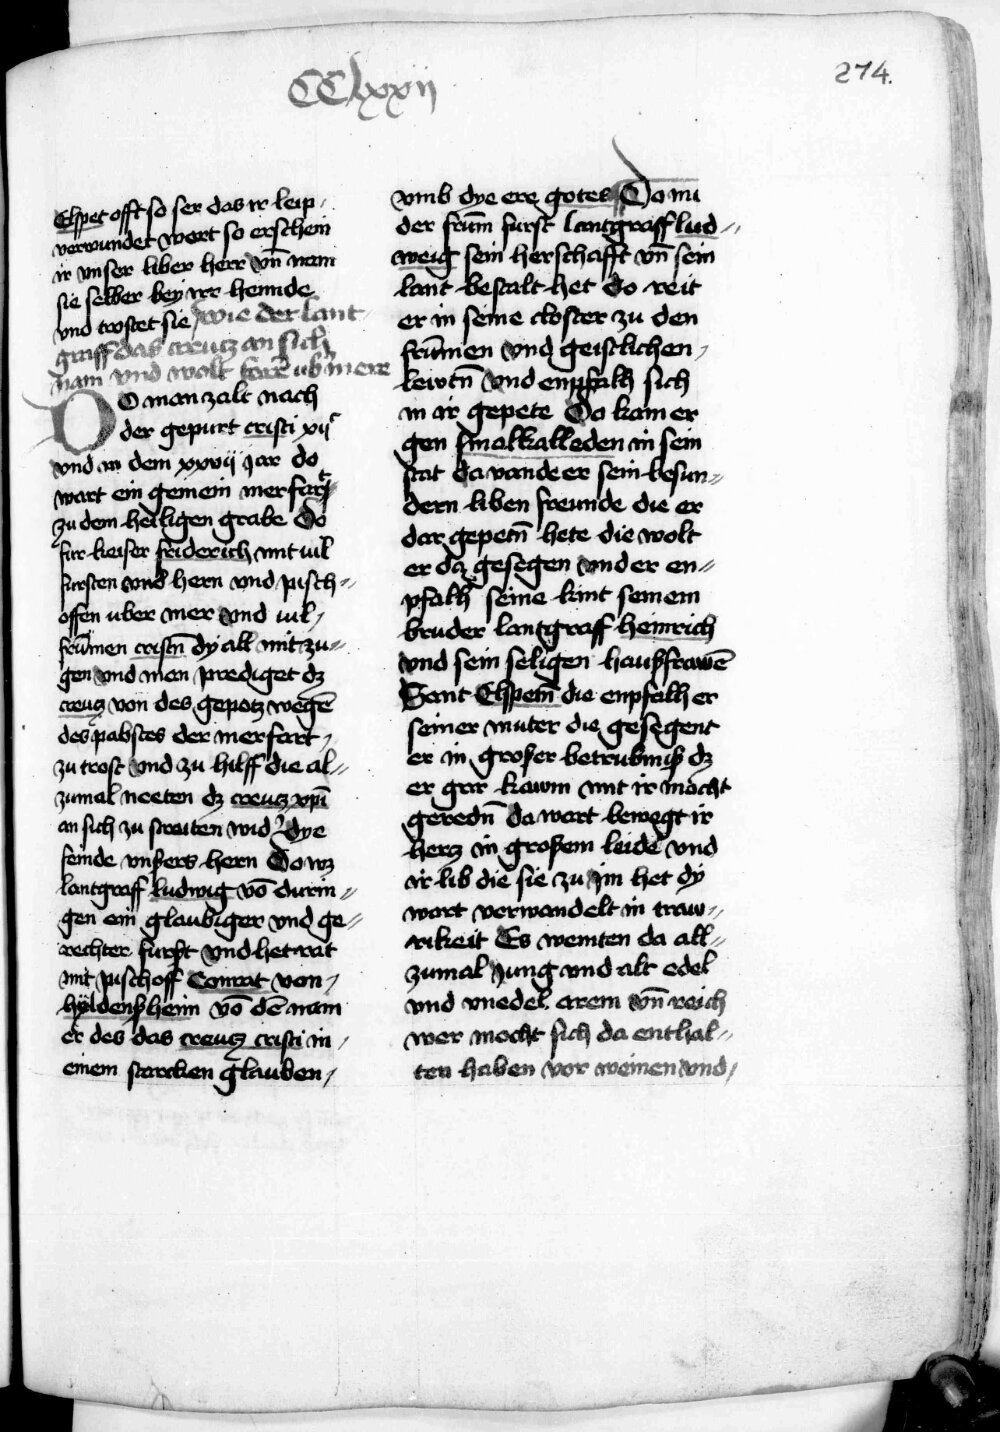 CClxxii
274.
Elspet offt so ser das ir leip /
verwundet wart so erschein
ir vnser liber herr vn̄ nam
sie selber bey irr hennde
vnd trostet sie wie der lant
graff das creutz an sich
nam vnd wolt farē ub̄ mere
DO man zalt nach
der gepurt cristi xijͨ
vnd in dem xxvij jar do
wart ein gemein merfart
zu dem heiligen grabe Do
fur keiser friderich mit uil
fursten vnd hern vnd pisch //
offen uber mer vnd uil /
frūmen cristn̄ dy all mit zu //
gen vnd man prediget dz
creutz von des gepotz wegē
des pabstes der merfart /
zu trost vnd zu hilff die al //
zumal neeten dz creutz xp̄i
an sich zu streiten wid' dye
feinde vnsers hern Do wz
lantgraff ludwig vō durin //
gen ein glaubiger vnd ge //
rechter furst vnd het rat
mit pischoff Conrat von /
hÿldenßheim vō dē nam
er des das creutz cristi in /
einem starcken glauben /
vmb dye ere gotes Do nu
der frūm furst lantgraff lud //
weig sein herschafft vn̄ sein
lant bestalt het do reit
er in seine closter zu den
frūmen vnd geistlichen /
lewtn̄ vnd enpfalh sich
in ir gepete Do kam er
gen smalkalleden in sein
stat da vande er sein besun //
dern liben freunde die er
dar gepetn̄ hete die wolt
er da gesegen vnd er en //
pfalh seine kint seinem
bruder lantgraff heinrich
vnd sein seligen haußfrawē
Sant Elspetn̄ die enpfalh er
seiner muter die gesegent
er in großer betrubniß dz
er gar kawm mit ir mocht
geredn̄ da wart bewegt ir
hertz in großem leide vnd
ir lib die sie zu im het dy
wart verwandelt in traw //
rikeit Es weinten da all //
zumal jung vnd alt edel
vnd vnedel arem vn̄ reich
wer mocht sich da enthal //
ten haben vor weinen vnd /